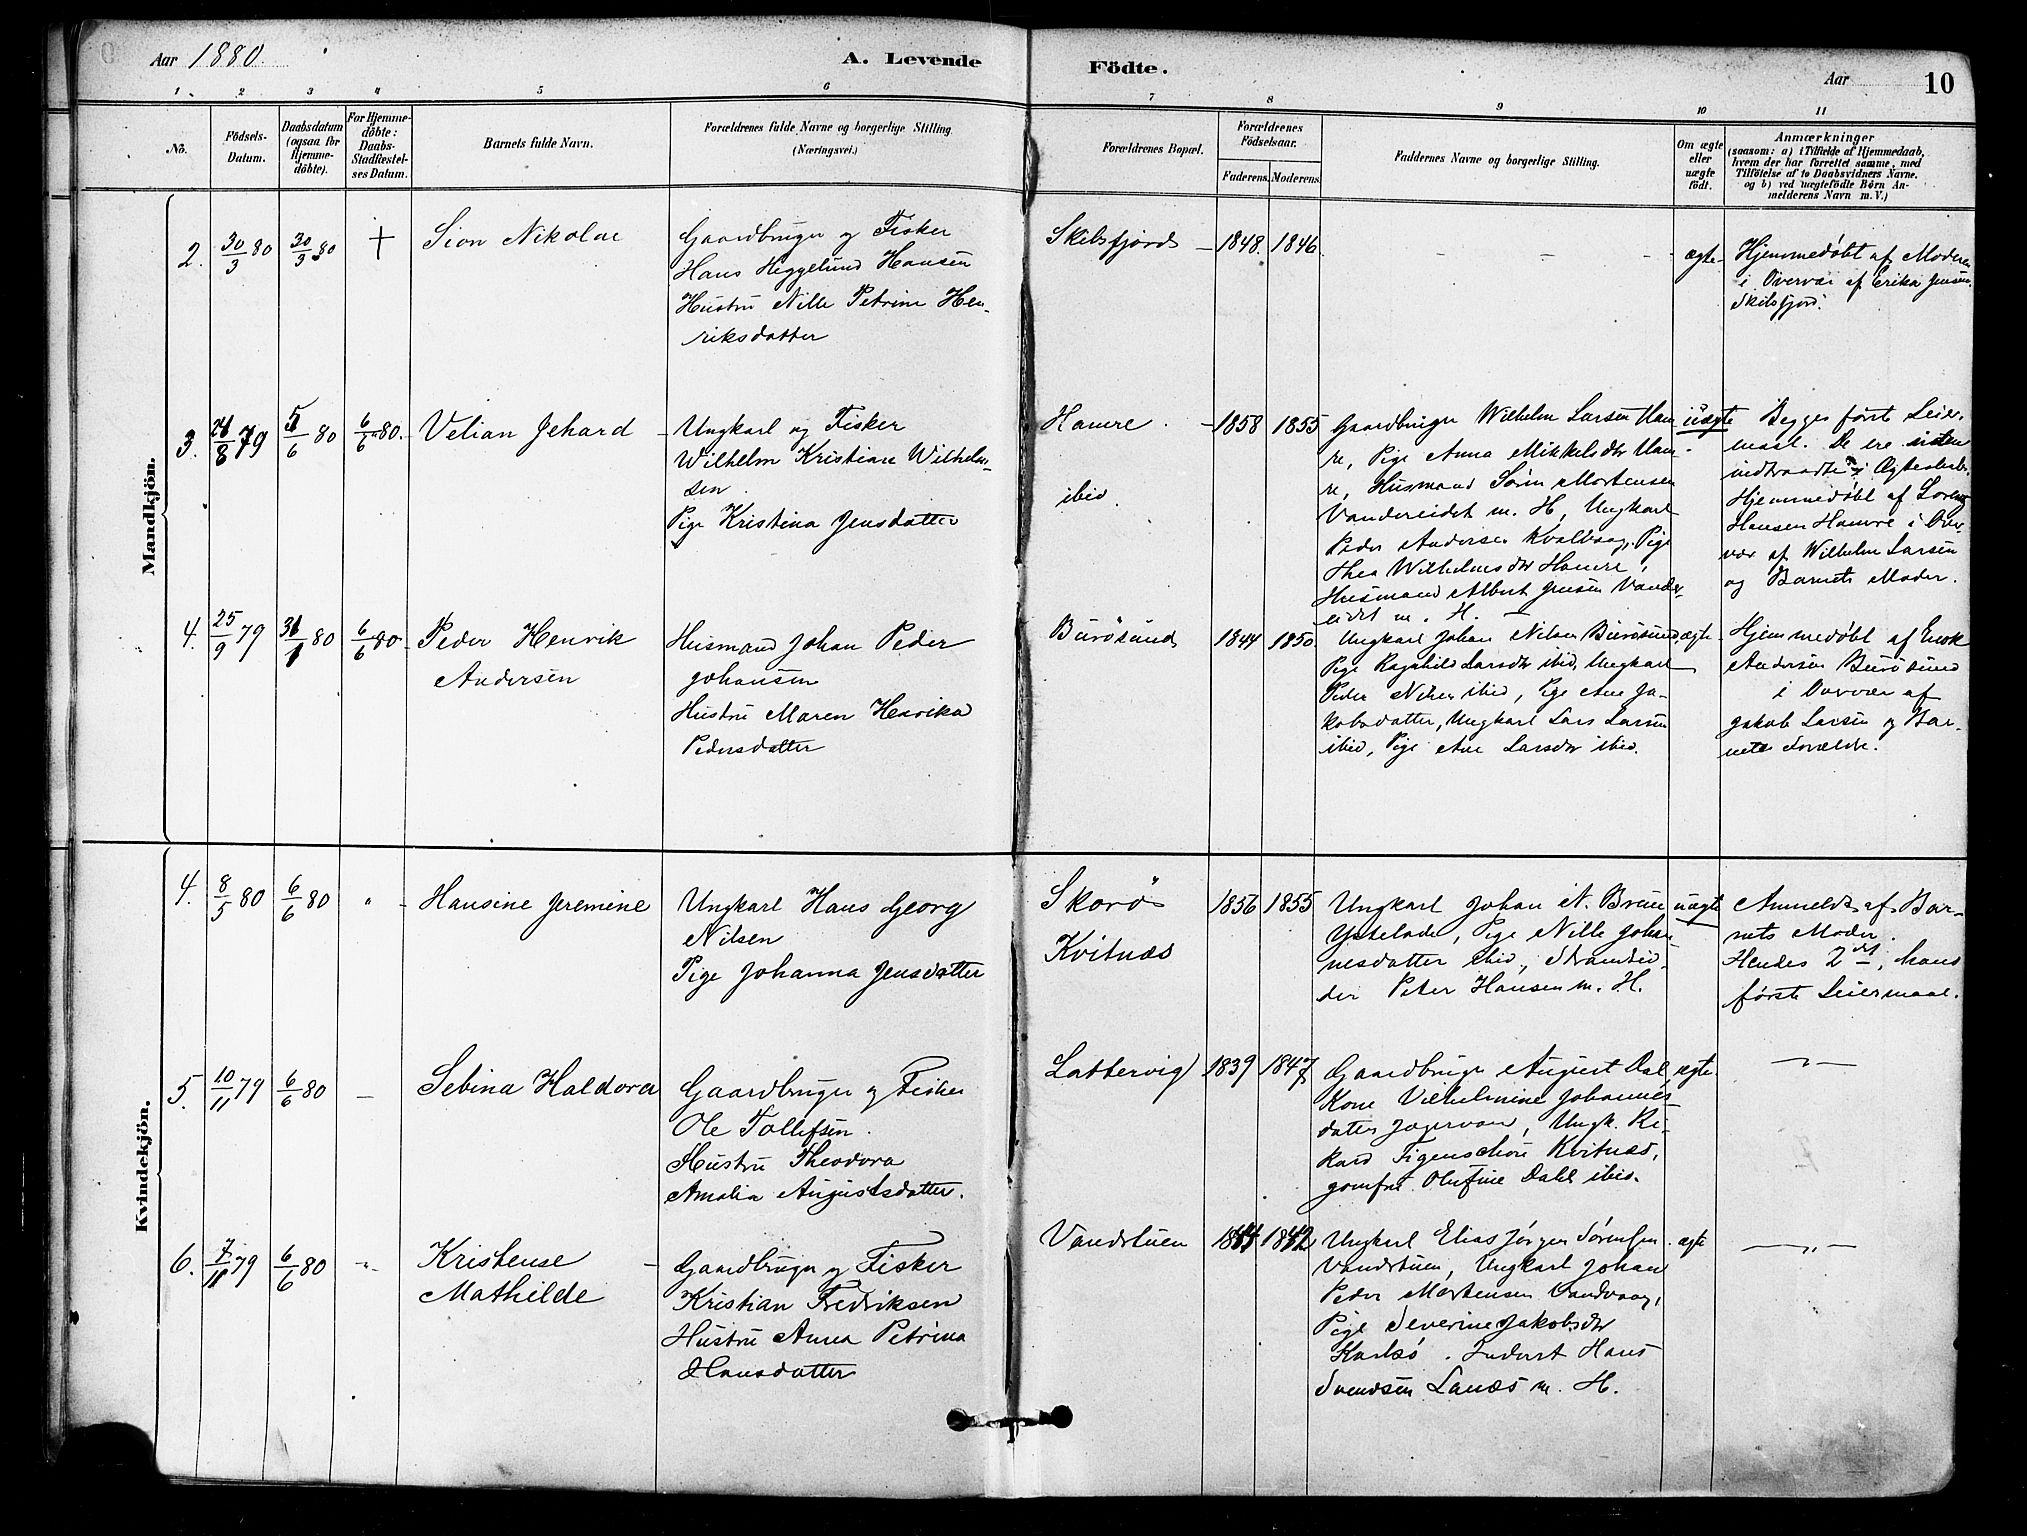 Aar 1880.
A. Levende Födte.
Aar
10
1. 2 3 4 5 6 7 8 9 10 11
No.
Födsels-
Datum.
Daabsdatum
(ogsaa for
Hjemme-
döbte).
For Hjemme-
döbte:
Daabs-
Stadfæstel-
ses Datum.
Barnets fulde Navn.
Forældrenes fulde Navne og borgerlige Stilling.
(Næringsvei.)
Forældrenes Bopæl.
Forældrenes
Födselsaar.
Faderens. Moderens.
Faddernes Navne og borgerlige Stilling.
Om ægte
eller
uægte
födt.
Anmærkninger
(saasom: a) i Tilfælde af Hjemmedaab,
hvem der har forrettet samme, med
Tilföielse af to Daabsvidners Navne.
og b) ved uægtefödte Börn An-
melderens Navn m.V.)
Mandkjön.
2. 30/3 80 30/3 80 + Sion Nikolai
Gaardbruger og Fisker
Hans Heggelund Hansen
Hustru Nille Petrine Hen-
riksdatter
Skibsfjord - 1848. 1846.
- - -
ægte-
Hjemmedøbt af Moderen
i Overvær af Erika Jensen
Skibsfjord.
3. 24/8 79 5/6 80 6/6 80. Velian Jehard
Ungkarl og Fisker
Wilhelm Kristian Wilhelm-
sen.
Pige Kristina Jensdatter
Hamre. - 1858 1855
ibid.
Gaardbruger Wilhelm Larsen Ham-
re, Pige Anna Mikkelsdtr Ham-
re, Husmand Sören Mortensen
Vandereidet m. H, Ungkarl
Peder Andersen Kvalvaag, Pige
Thea Wilhelmsdtr Hamre,
Husmand Albert Jensen Vander-
eidet m. H.
uægte
Begges först Leier-
maal. De ere siden
indtraadte i Ægteskab.
Hjemmedøbt af Lorents
Hansen Hamre i Over-
vær af Wilhelm Larsen
og Barnets Moder.
4. 25/9 79 31/1 80 6/6 80 Peder Henrik
Andersen
Husmand Johan Peder
Johansen
Hustru Maren Henrika
Pedersdatter
Burösund 1844 1850.
Ungkarl Johan Nilsen Burösund,
Pige Ragnhild Larsdtr ibid, Ungkarl
Peder Nilsen ibid, Pige Ane Ja-
kobsdatter, Ungkarl Lars Larsen
ibid, Pige Ane Larsdtr ibid.
ægte-
Hjemmedøbt af Enok
Andersen Burösund
i Overvær af
Jakob Larsen og Bar-
nets Forældre.
Kvindekjön.
4. 8/5 80 6/6 80 " - Hansine Jeremine
Ungkarl Hans Georg
Nilsen
Pige Johanna Jensdatter
Skorö 1856 1855
Kvitnæs
Ungkarl Johan A. Bruun
Yttelade, Pige Nille Johan-
nesdatter ibid, Strandsid-
der Peter Hansen m. H.
uægte
Anmeldt af Bar-
nets Moder.
Hendes 2det, hans
förste Leiermaal.
5. 10/11 79 6/6 80 - Sebina Haldora
Gaardbruger og Fisker
Ole Tollefsen.
Hustru Theodora
Amalia Augustsdatter.
Lattervig 1839 1847
Gaardbruger August Dal,
Kone Vilhelmine Johannes-
datter Jægervan, Ungk. Ri-
kard Figenschou Kvitnæs,
Jomfru Olufine Dahl ibid.
ægte
- " -
6. 7/11 79 6/6 80 " Kristense -
Mathilde
Gaardbruger og Fisker
Kristian Fredriksen
Hustru Anna Petrina
Hansdatter
Vandstuen 1844 1842
Ungkarl Elias Jörgen Sörensen
Vandstuen, Ungkarl Johan
Peder Mortensen Vandvaag,
Pige Severine Jakobsdtr
Karlsö. Inderst Hans
Svendsen Lanæs m. H.
ægte
- " -